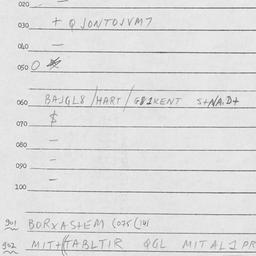 020 —
030 + QJONTOJVM7
040 —
050 O
060 BAJGL8/HART/G81KENT S+NA.D+
070 $
080 —
090 –
100 –
901 BORXASTEM (075(141
902 MIT+(TABLTIR QGL MITAL1PR